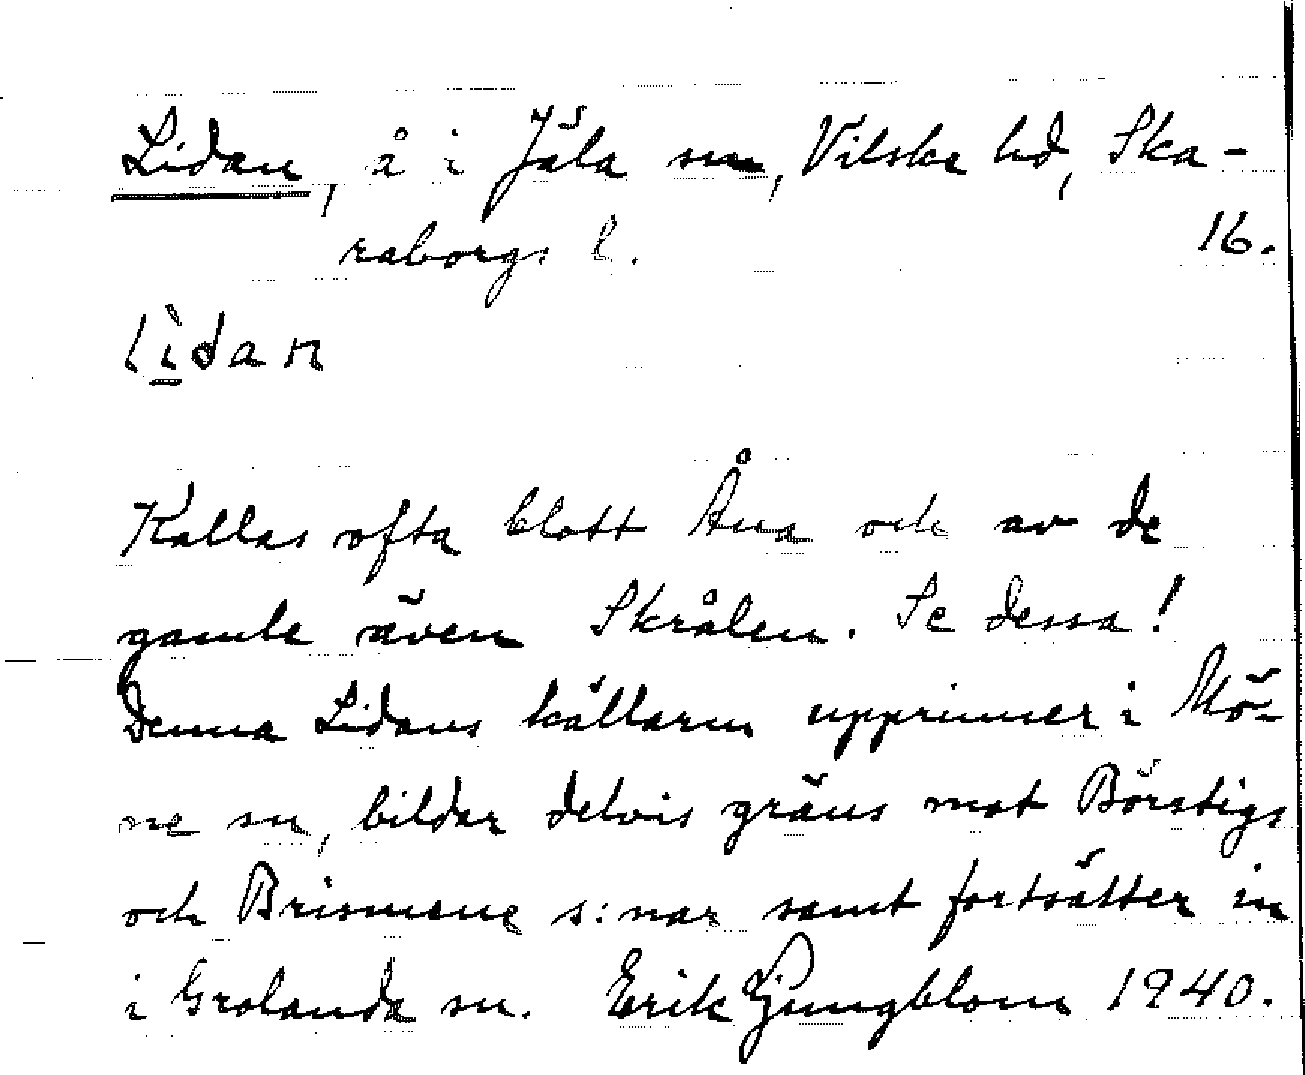 Lidan, å i Jäla sn, Vilske hd, Ska-
raborgs l. 16.
lìdan
Kallas ofta blott Åna och av de
gamle även Skrålen. Se dessa!
Denna Lidans källarm upprinner i Mö-
ne sn, bildar delvis gräns mot Börstigs
och Brismene s:nar samt fortsätter in
i Grolanda sn. Erik Ljungblom 1940.